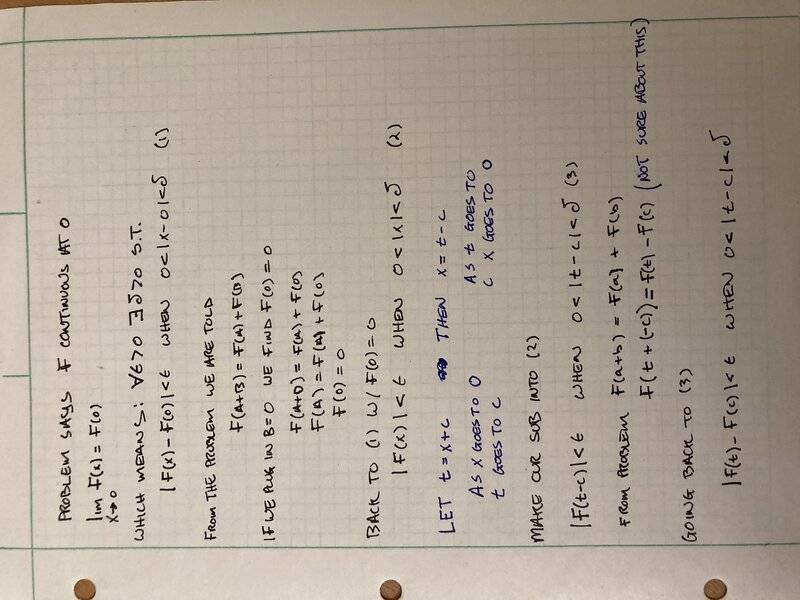 PROBLEM SAYS F CONTINUOUS AT 0
lim F(x) = F(0)
x→0
WHICH MEANS: ∀ϵ>0 ∃δ>0 S.T.
|F(x) - F(0)| < ϵ WHEN 0<|x-0|<δ (1)
FROM THE PROBLEM WE ARE TOLD
F(A+B) = F(A)+F(B)
IF WE PLUG IN B=0 WE FIND F(0)=0
F(A+0) = F(A) + F(0)
F(A) = F(A) + F(0)
F(0) = 0
BACK TO (1) W/ F(0)=0
|F(x)| < ϵ WHEN 0<|x|<δ (2)
LET t=x+c THEN x=t-c
AS x GOES TO 0 AS t GOES TO
t GOES TO c c x GOES TO 0
MAKE OUR SUB INTO (2)
|F(t-c)|<ϵ WHEN 0<|t-c|<δ (3)
FROM PROBLEM F(a+b) = F(a) + F(b)
F(t+(-c)) = F(t) - F(c) (NOT SURE ABOUT THIS)
GOING BACK TO (3)
|F(t) - F(c)| < ϵ WHEN 0<|t-c|<δ